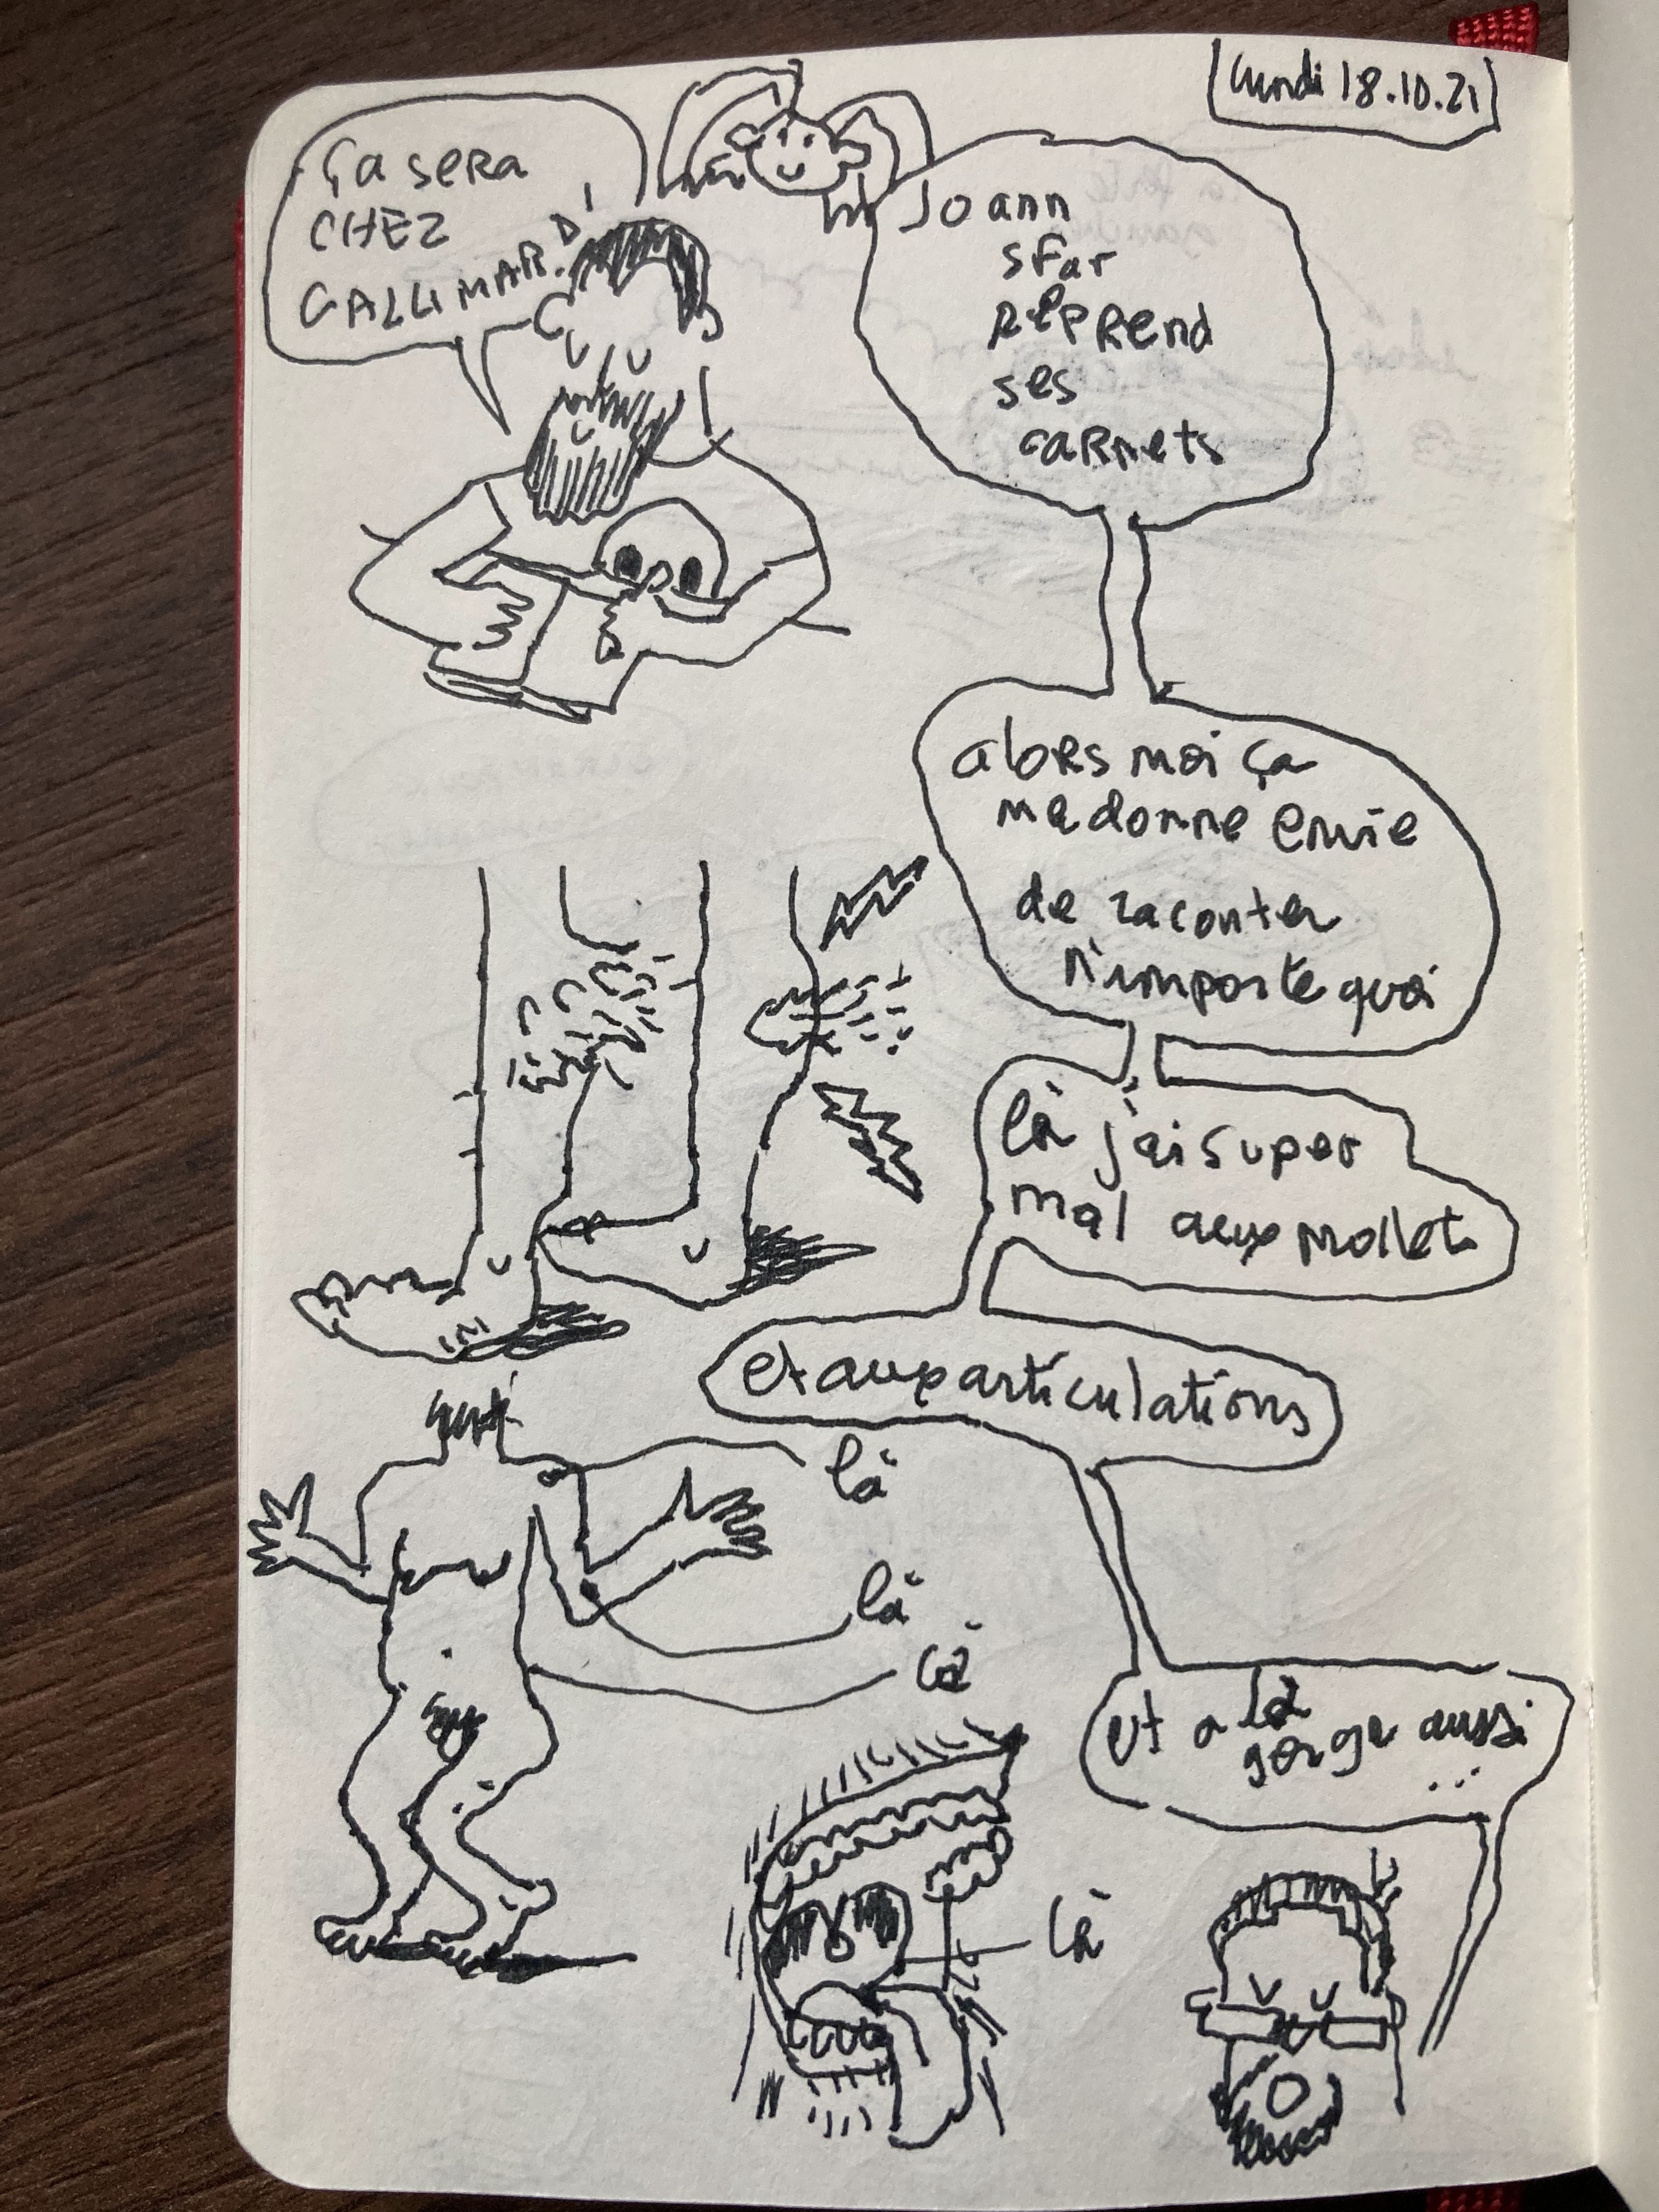 lundi 18.10.21
ça sera
CHEZ
GALLIMARD!
Joann
sfar
reprend
ses
carnets
alors moi ça
me donne envie
de raconter
n'importe quoi
là j'ai super
mal aux mollets
et aux articulations
là
là
là
et a la
gorge aussi
...
là